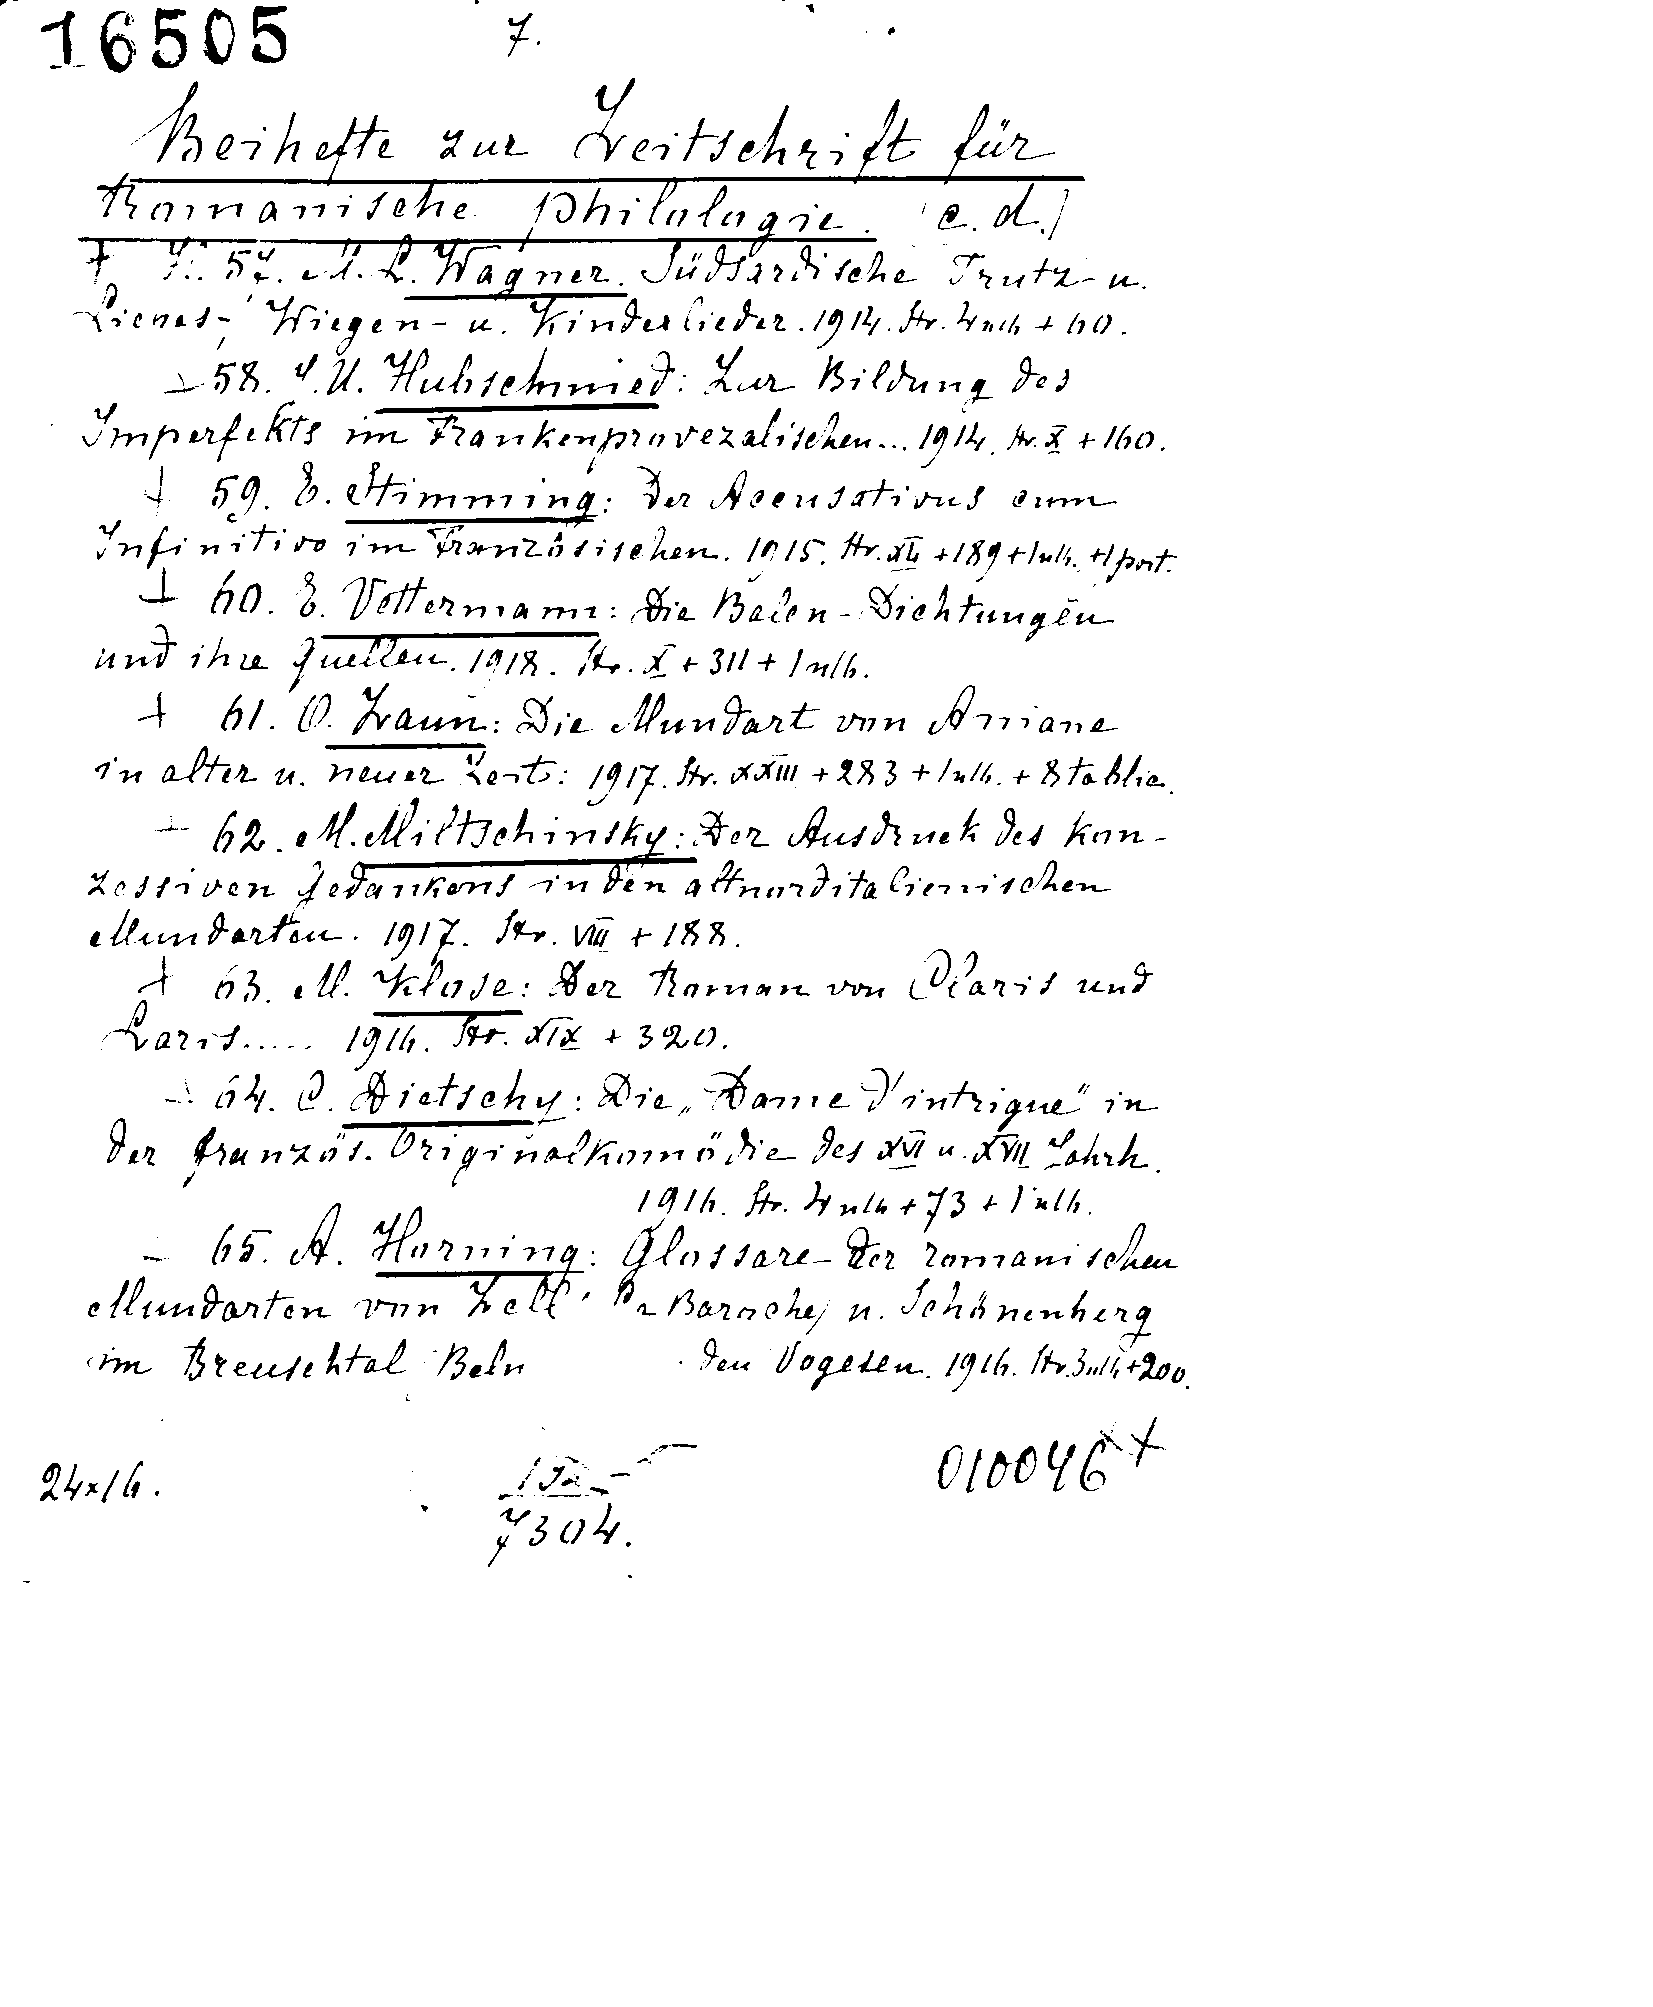 16505 7.
Beihefte zur Zeitschrift für
Romanische Philologie. (c. d.)
+ 57. M. L. Wagner. Südsardische Trutz- u.
Liebes-, Wiegen- u. Kinderlieder. 1914. Str. 4 nlb + 60.
58. J. U. Hubschmied: Zur Bildung des
Imperfekts im Frankenprovezalischen... 1914. Str. X + 160.
+ 59. E. Stimming: Der Accusativus cum
Infinitivo im Französischen. 1915. Str. XII + 189 + 1 nlb. + 1 port.
+ 60. E. Vettermann: Die Balen-Dichtungen
und ihre Quellen. 1918. Str. X + 311 + 1 nlb.
+ 61. O. Zaun: Die Mundart von Aniane
in alter u. neuer Zeit: 1917. Str. XXIII + 283 + 1 nlb. + 8 tablic.
+ 62. M. Miltschinsky: Der Ausdruck des kon-
zessiven Gedankens in den altnorditalienischen
Mundarten. 1917. Str. VIII + 188.
+ 63. M. Klose: Der Roman von Claris und
Laris..... 1916. Str. XIX + 320.
64. C. Dietschy: Die „Dame d'intrigue" in
der französ. Originalkomödie des XVI u. XVII Jahrh.
1916. Str. 4 nlb + 73 + 1 nlb.
- 65. A. Horning: Glossare der romanischen
Mundarten von Zell Baroche) u. Schönenberg
im Breuschtal Beln den Vogesen. 1916. Str. 3 nlb + 200.
24x16. 010046 +
7304.